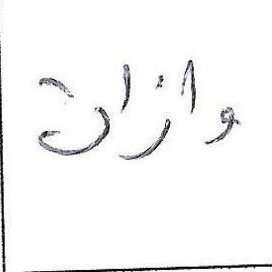 وازان